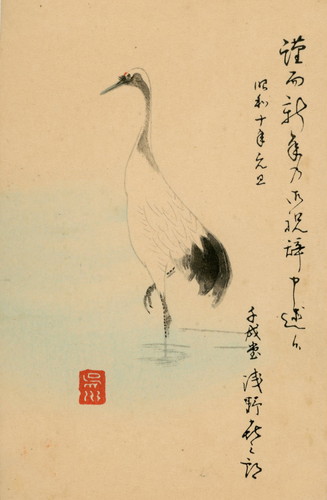 謹而新年乃御祝辞申述候
昭和十年元旦
千成堂 浅野